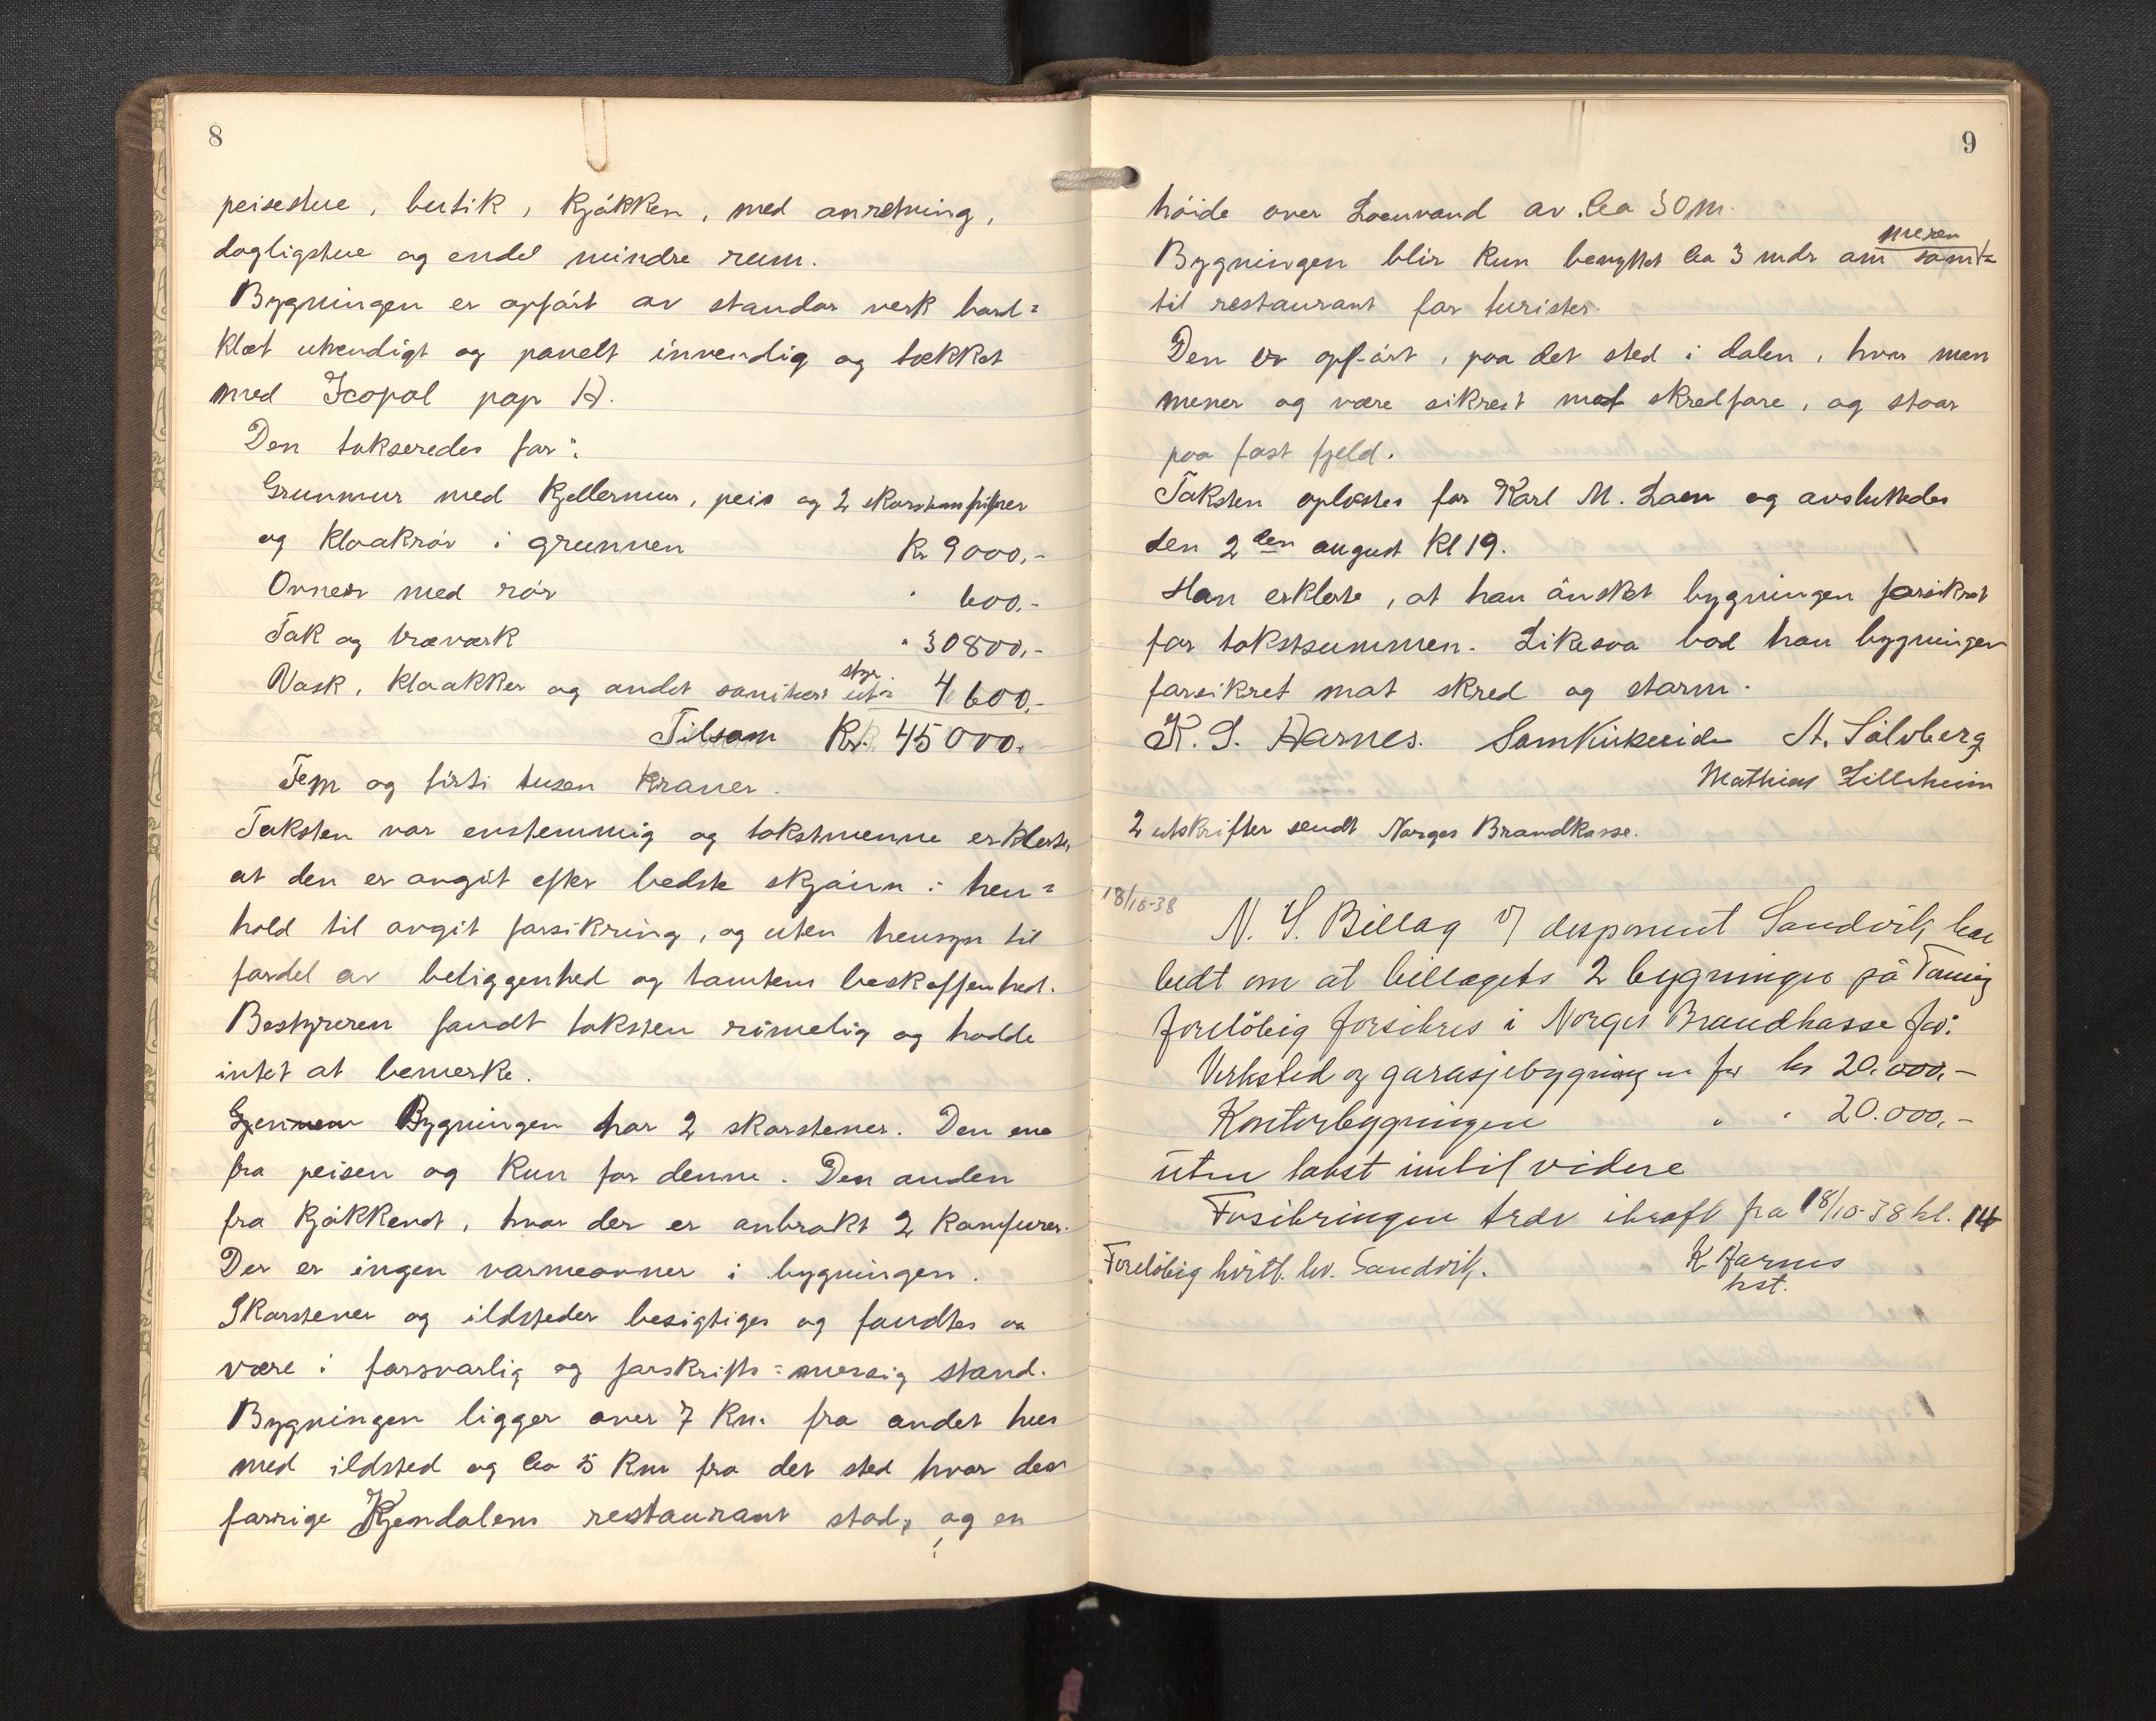 8
peisestue, butik, kjøkken, med anretning,
dagligstue og endel mindre rum.
Bygningen er opført av standar verk bord=
klæt utvendigt og panelt invendig og tækket
med Icopal pap A.
Den takseredes for:
Grunmur med kjellermur, peis og 2 skorstenspiper
og kloakrør i grunnen Kr 9000,-
Ovner med rør " 600.-
Tak og træverk " 30800,-
Vask, kloakker og andet sanitært utstyr " 4600,-
Tilsam Kr. 45000.
Fem og firti tusen kroner.
Taksten var enstemmig og takstmenne erklerte,
at den er avgit efter bedste skjønn i hen=
hold til avgit forsikring, og uten hensyn til
fordel av beliggenhed og tomtens beskaffenhed.
Bestyreren fandt taksten rimelig og hadde
intet at bemerke.
Gjennem Bygningen har 2 skorstener. Den ene
fra peisen og kun for denne. Den anden
fra kjøkkenet, hvor der er anbrakt 2 komfurer.
Der er ingen varmeovner i bygningen.
Skorstener og ildsteder besigtiges og fandtes aa
være i forsvarlig og forskrifts=messig stand.
Bygningen ligger over 7 km. fra andet hus
med ildsted og ca 5 km fra det sted hvor den
forrige Kjendalens restaurant stod, og en
9
høide over Loenvand av ca 30 m.
Bygningen blir kun benyttet ca 3 mdr om somme­ren
til restaurant for turister.
Den er opført, paa det sted i dalen, hvor man
mener og være sikrest mot skredfare, og staar
paa fast fjeld.
Taksten oplæstes for Karl M. Loen og avsluttedes
den 2den august Kl 19.
Han erklerte, at han ønsket bygningen forsikret
for takstsummen. Likesaa bad han bygningen
forsikret mot skred og storm.
K. S. Aarnes. Sam Kirkeeide A. Sølvberg
Mathias Lilleheim
2 utskrifter sendt Norges Brandkasse.
18/10-38
N. S. Billag v/ disponent Sandvik har
bedt om at billagets 2 bygninger på Tonning
foreløbig forsikres i Norges Brandkasse for:
Verksted og garasjebygningen for kr 20.000,-
Kontorbygningen " " 20.000,-
uten takst inntil videre
Forsikringen træder ikraft fra 18/10-38 kl. 14
Foreløbig kvitt. lev. Sandvik. K Aarnes
bst.